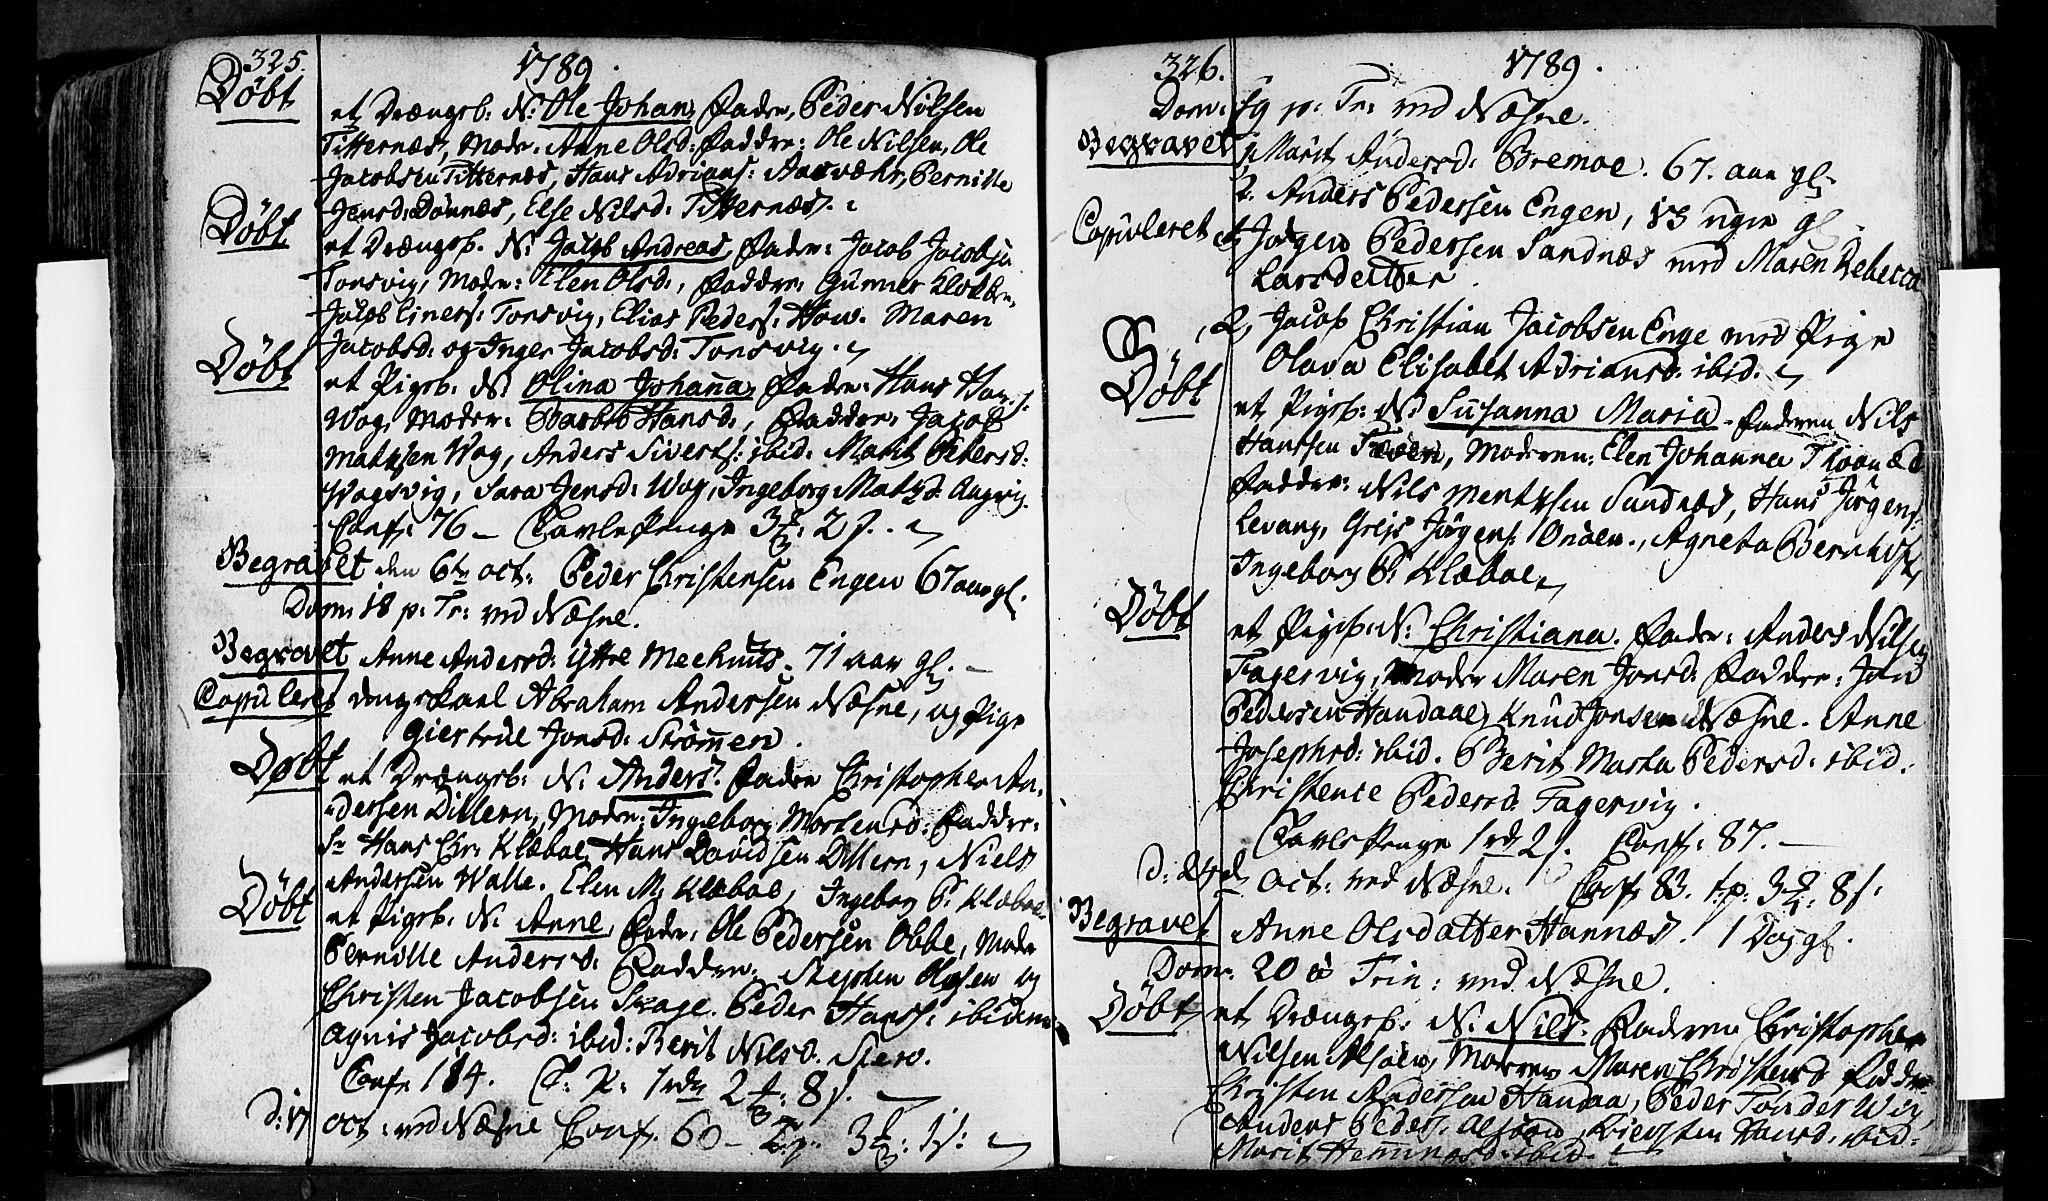 325. 1789.
Døbt et Drængb: N: Ole Johan, Fader, Peder Nilsen
Titternæs, Moder. Anne Olsd: Faddre: Ole Nilsen, Ole
Jacobsen Titternæs, Hans Adrians: Aasværhr, Pernille
Jensd: Dønnæs, Else Nilsd: Titternæs.
Døbt et Drængb. N: Jacob Andreas, Fader: Jacob Jacobsen
Torsvig, Moder: Elen Olsd:, Faddre: Gunner
Jacob Einers: Torsvig, Elias Peders: How. Maren
Jacobsd: og Inger Jacobsd: Torsvig.
Døbt et Pigeb: N: Olina Johanna, Fader: Hans Hans:
Wog, Moder: Hansd:, Faddre: Jacob
Matysen Wog, Anders Siverts: ibid. Marit Pedersd:
Wogsvig, Sara Jensd: Wog, Ingeborg Matsd: Angvig.
Conf: 76 – Tavle Penge 3 : 2 s.
Begravet den 6te oct: Peder Christensen Engen 67 aar gl.
Dom: 18 p: Tr: ved Næsne.
Begravet Anne Andersd: Yttre 71 aar gl. –
Copuleret Abraham Andersen Næsne, og Pige
Giertrue Jonsd: Strømmen.
Døbt et Drængb: N: Anders. Fader Christopher An-
dersen Dillern, Moder: Ingeborg Mortensd: Faddre:
Sr Hans Chr: Klæboe, Hans Davidsen Dillern, Niels
Andersen Walle. Elen M: Klæboe, Ingeborg P: Klæboe.
Døbt et Pigeb: N: Anne, Fader, Ole Pedersen Obbe, Moder
Pernille Andersd: Faddre: Stephen Olsen og
Christen Jacobsen Peder Hanss: ibidem.
Agnis Jacobsd: ibid: Berit Nilsd.
Conf: 184. T: P: 1 rdr 2 : 8 s. –
D: 17 oct: ved Næsne Conf. 60 – T:p. 3 : 1 s:
326. 1789.
Dom: 19 p: Tr: ved Næsne.
Begravet 1, Marit Andersd: Bremoe. 67. aar gl.
2. Anders Pedersen Engen, 13 uger gl.
Copuleret 1, Jørgen Pedersen Sandnæs med Maren Rebecca
Larsdatter.
2, Jacob Christian Jacobsen Enge med Pige
Olava Elisabet Adriansd: ibid.
Døbt et Pigeb: N: Susanna Maria – Faderen Nils
Hanssen Moderen: Elen Johanna
Faddre: Nils Mentzsen Sundnæs, Hans Jørgens:
Levang, Grejs Jørgens: Agneta
Ingeborg P: Klæboe.
Døbt et Pigeb: N: Christiana. Fader: Anders Nilsen
Fagervig, Moder Maren Jonsd: Faddre: Jon
Pedersen Handaae, Knud Jonsen Næsne. Anne
Josephsd: ibid. Berit Marta Pedersd: ibid.
Christence Pedersd: Fagervig.
Tavle Penge 1 rd 2 s. Conf: 87. –
D: oct: ved Næsne. Conf: 83. t:p: 3 : 8 s:
Begravet Anne Olsdatter Hannæs. 1 Dag gl.
Dom. 20 Trin: ved Næsne.
Døbt et Drængb: N. Nils. Faderen Christopher
Nilsen Maren Faddre:
Christen Andersen Handaa, Peder Tønder
Anders Peders: ibid:
Marit ibid.